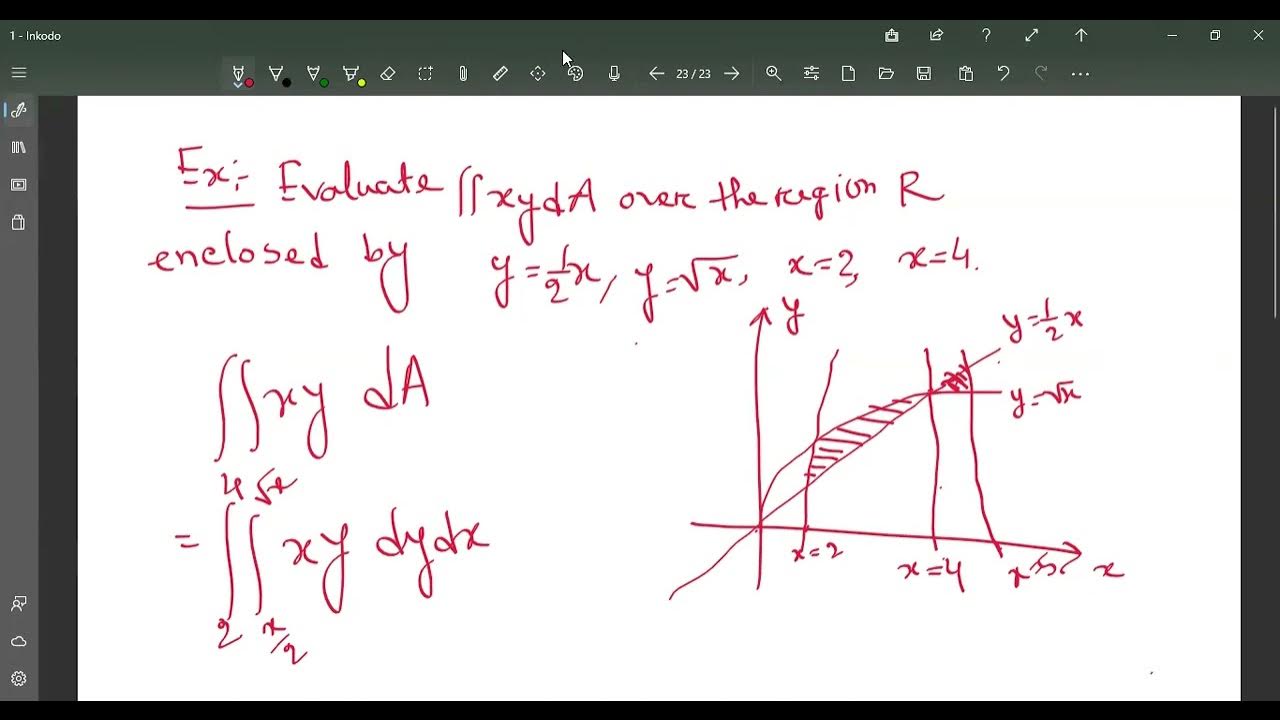 1 - Inkodo
23 / 23
Ex:- Evaluate ∬xydA over the region R
enclosed by y=½x, y=√x, x=2, x=4.
y
y=½x
y=√x
∬ xy dA
= ∫₂⁴ ∫_{x/2}^{√x} xy dydx
x=2
x=4
x